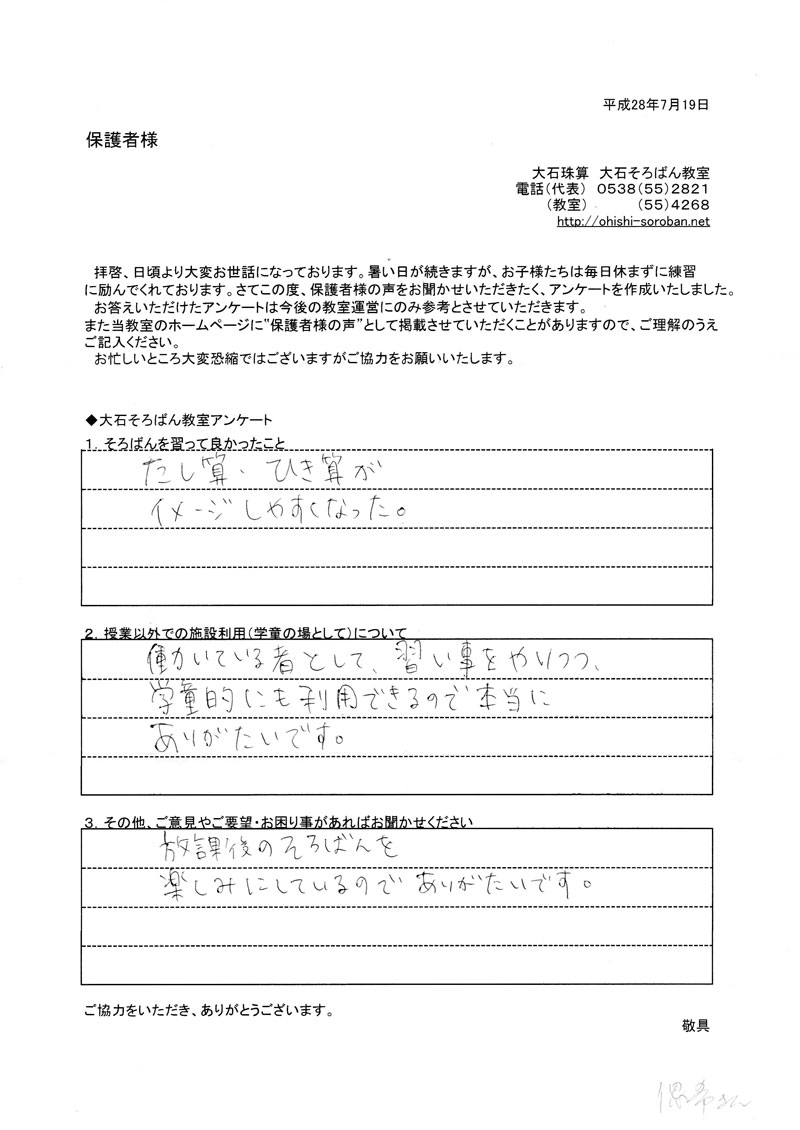 平成28年7月19日
保護者様
大石珠算 大石そろばん教室
電話(代表) 0538(55)2821
(教室) (55)4268
http://ohishi-soroban.net
拝啓、日頃より大変お世話になっております。暑い日が続きますが、お子様たちは毎日休まずに練習
に励んでくれております。さてこの度、保護者様の声をお聞かせいただきたく、アンケートを作成いたしました。
お答えいただけたアンケートは今後の教室運営にのみ参考とさせていただきます。
また当教室のホームページに"保護者様の声"として掲載させていただくことがありますので、ご理解のうえ
ご記入ください。
お忙しいところ大変恐縮ではございますがご協力をお願いいたします。
◆大石そろばん教室アンケート
1. そろばんを習って良かったこと
たし算・ひき算が
イメージしやすくなった。
2. 授業以外での施設利用(学童の場として)について
働かいている者として、習い事をやりつつ、
学童的にも利用できるので本当に
ありがたいです。
3. その他、ご意見やご要望・お困り事があればお聞かせください
放課後のそろばんを
楽しみにしているのでありがたいです。
ご協力をいただき、ありがとうございます。
敬具